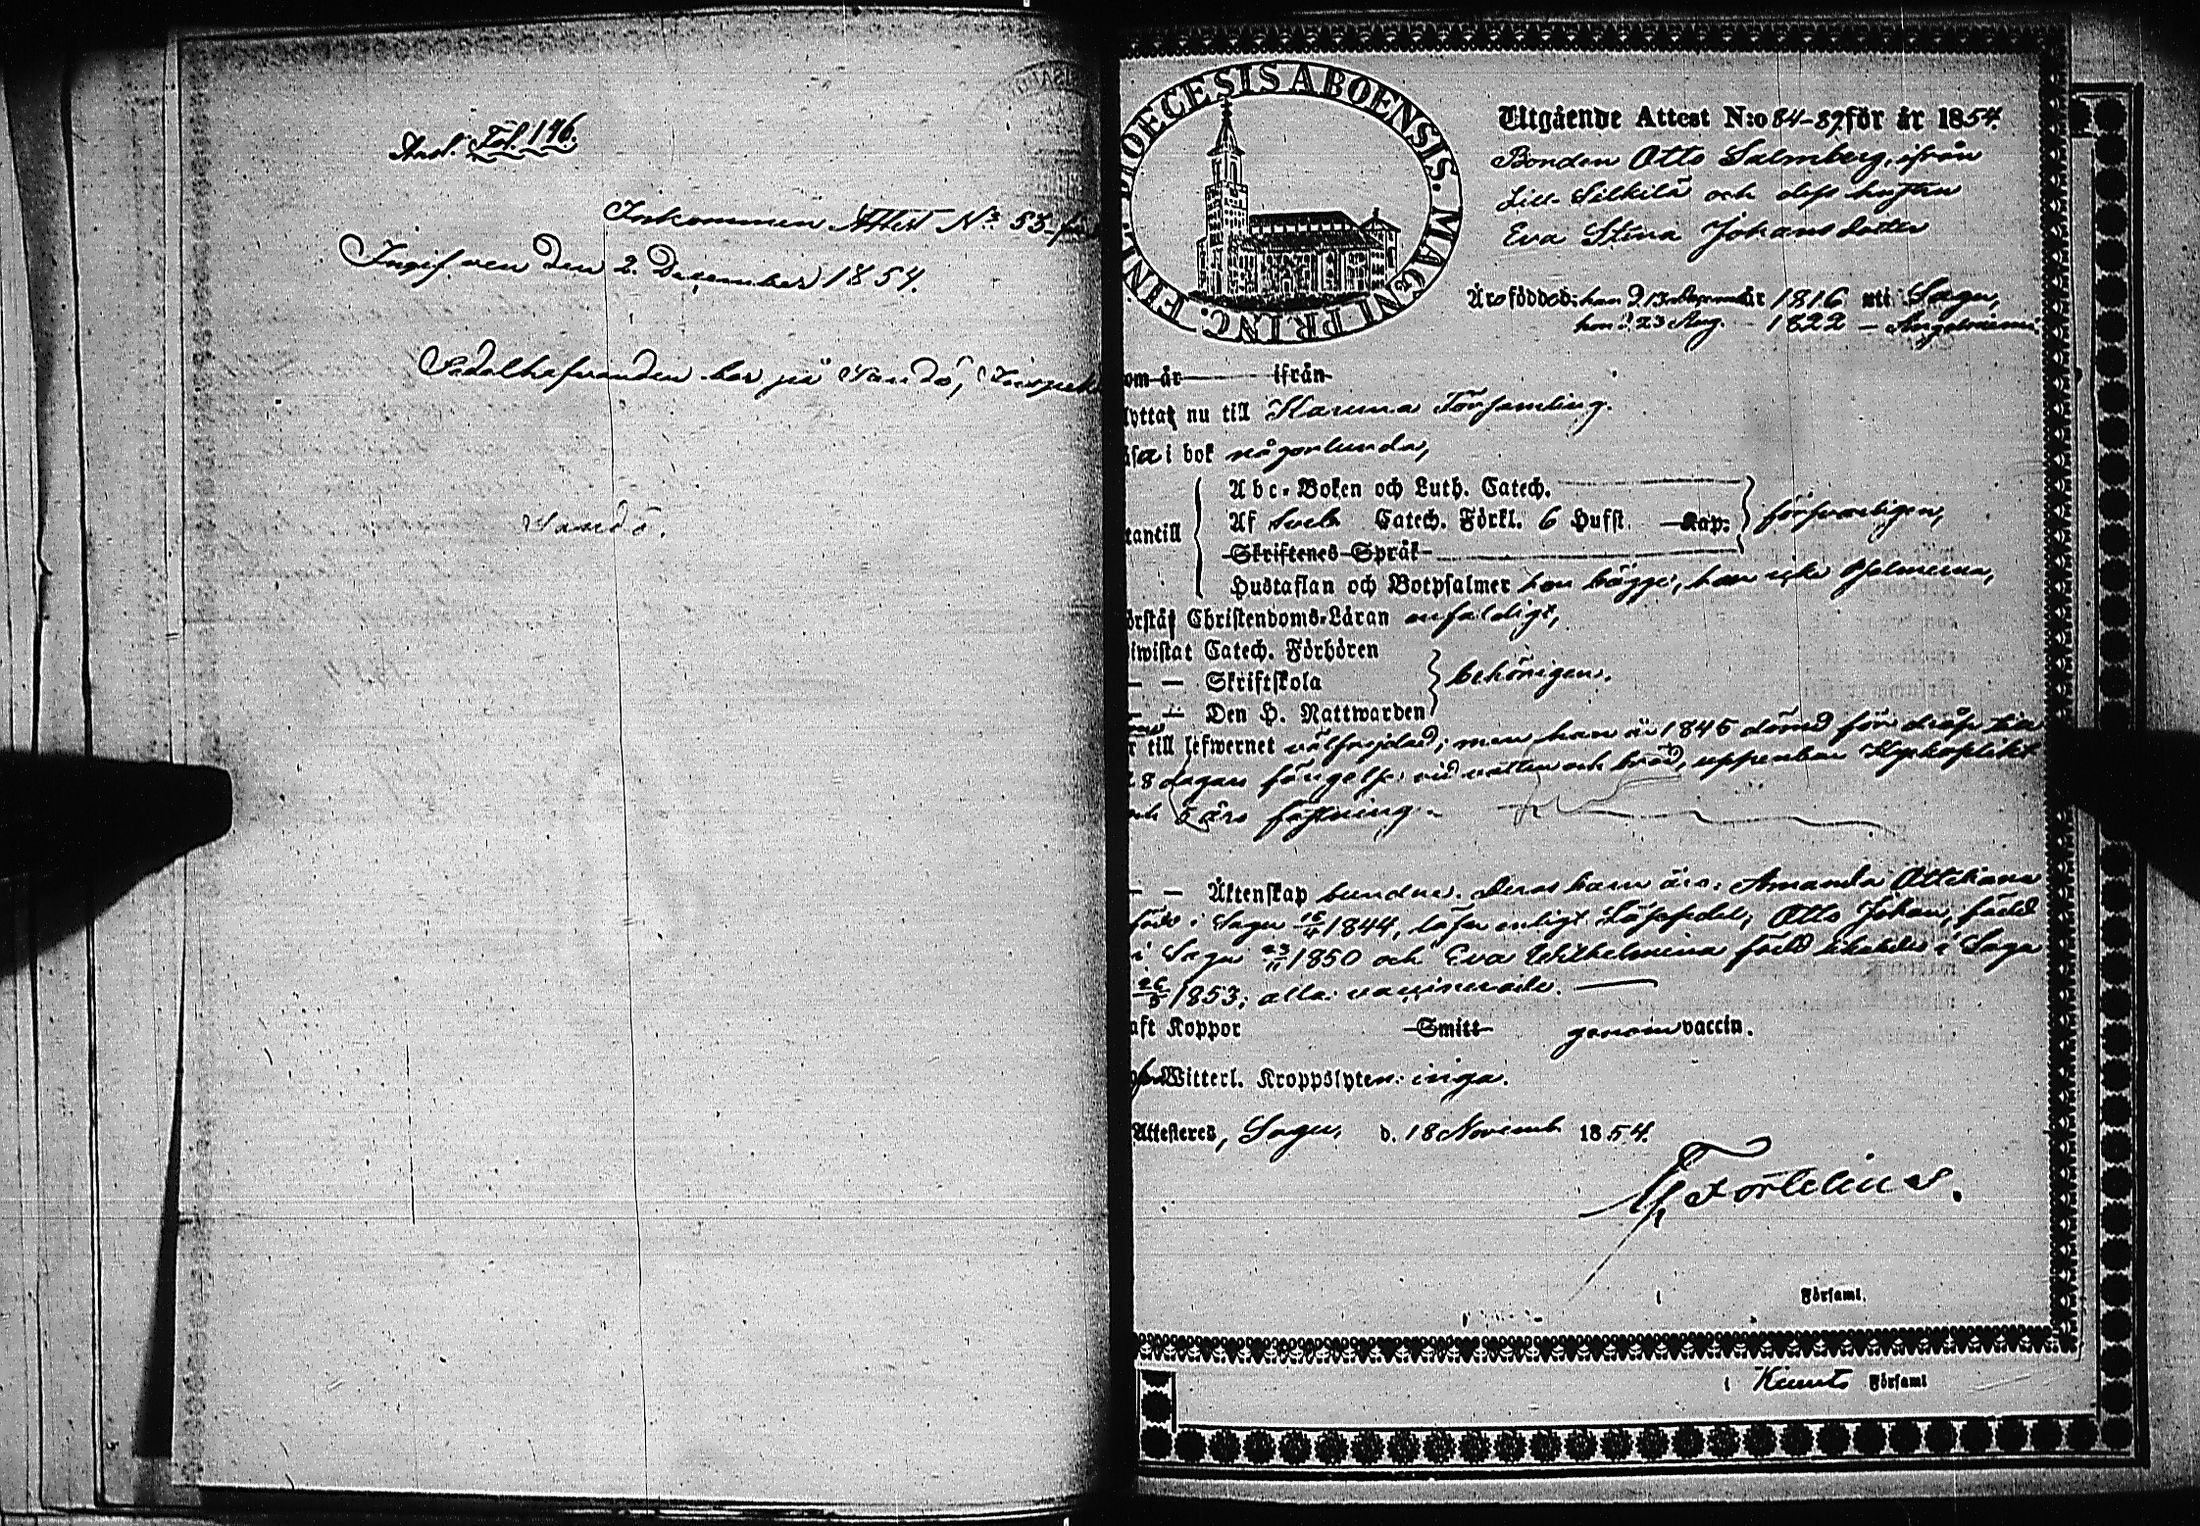 Ansl. Fol. 196.
Inkommen Attest No 53 för
Ingifven den 2. December 1854.
Sedelhafvanden bor på Sandö,
Sandö.
DIOECESIS ABOENSIS. MAGNI PRINC. FINL.
Utgående Attest N:o 84-87 för år 1854.
Bonden Otto Salmberg, ifrån
Lill-Silkilä och dess hustru
Eva Stina Johansdotter
Äro född: han d 13 December 1816 uti Sagu,
hon d 23 Aug. - 1822 -
om är ifrån
lyttat nu till Karuna Församling.
äsa i bok någorlunda,
tantill
Abc-Boken och Luth. Catech.
Af Sveb. Catech. Förkl. 6 Hufst. Kap: försvarligen,
Skriftenes Språk
Hustaflan och Botpsalmer hon bägge, han icke Psalmerna,
örstå Christendoms-Läran enfaldigt,
iwistat Catech. Förhören
— — Skriftskola behörigen.
— — Den H. Nattwarden
r till lefwernet välfrejdad; men han är 1845 dömd för dråp till
28 dagars fängelse vid vatten och bröd, uppenbar Kyrkoplikt
och 5 års fästning.
— — Äktenskap bundne. Deras barn äro: Amanda
född i Sagu 1844, läser enligt Läspedel; Otto Johan, född
i Sagu 23/11 1850 och Eva Wilhelmina född i Sagu
26/5 1853; alla vaccinerade.
aft Koppor Smitt genom vaccin.
Witterl. Kroppslyten: inga.
Attesteres, Sagu, d. 18 Novemb. 1854.
Fortelius.
i Församl.
i Församl